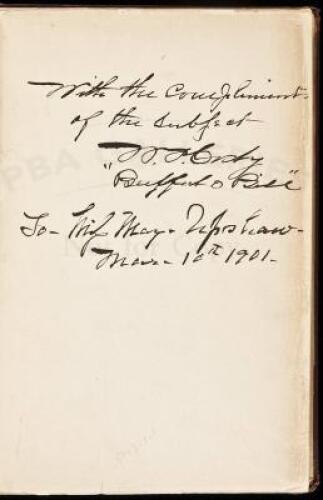 With the Compliments
of the Subject
W. F. Cody
"Buffalo Bill"
To- Miss May- Upshaw-
Mar- 10th 1901-
PBA